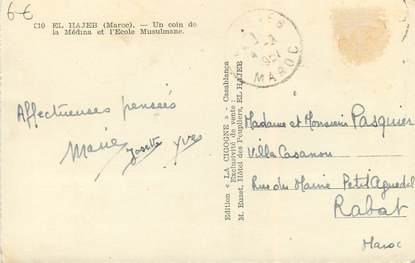 6€
C10 EL HAJEB (Maroc). — Un coin de
la Médina et l'Ecole Musulmane.
MAROC
Affectueuses pensées
Marie Josette Yves
Edition « LA CIGOGNE » - Casablanca
Exclusivité de vente :
M. Euzet, Hôtel des Peupliers, EL HAJEB
Madame et Monsieur Pasquier
Villa Casanou
Rue du Maine Petit Aguedal
Rabat
Maroc